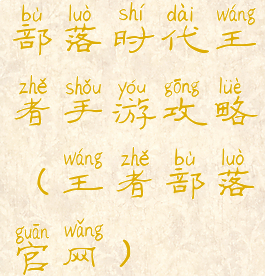 bù luò shí dài wáng
部落时代王
zhě shǒu yóu gōng lüè
者手游攻略
wáng zhě bù luò
（王者部落
guān wǎng
官网）